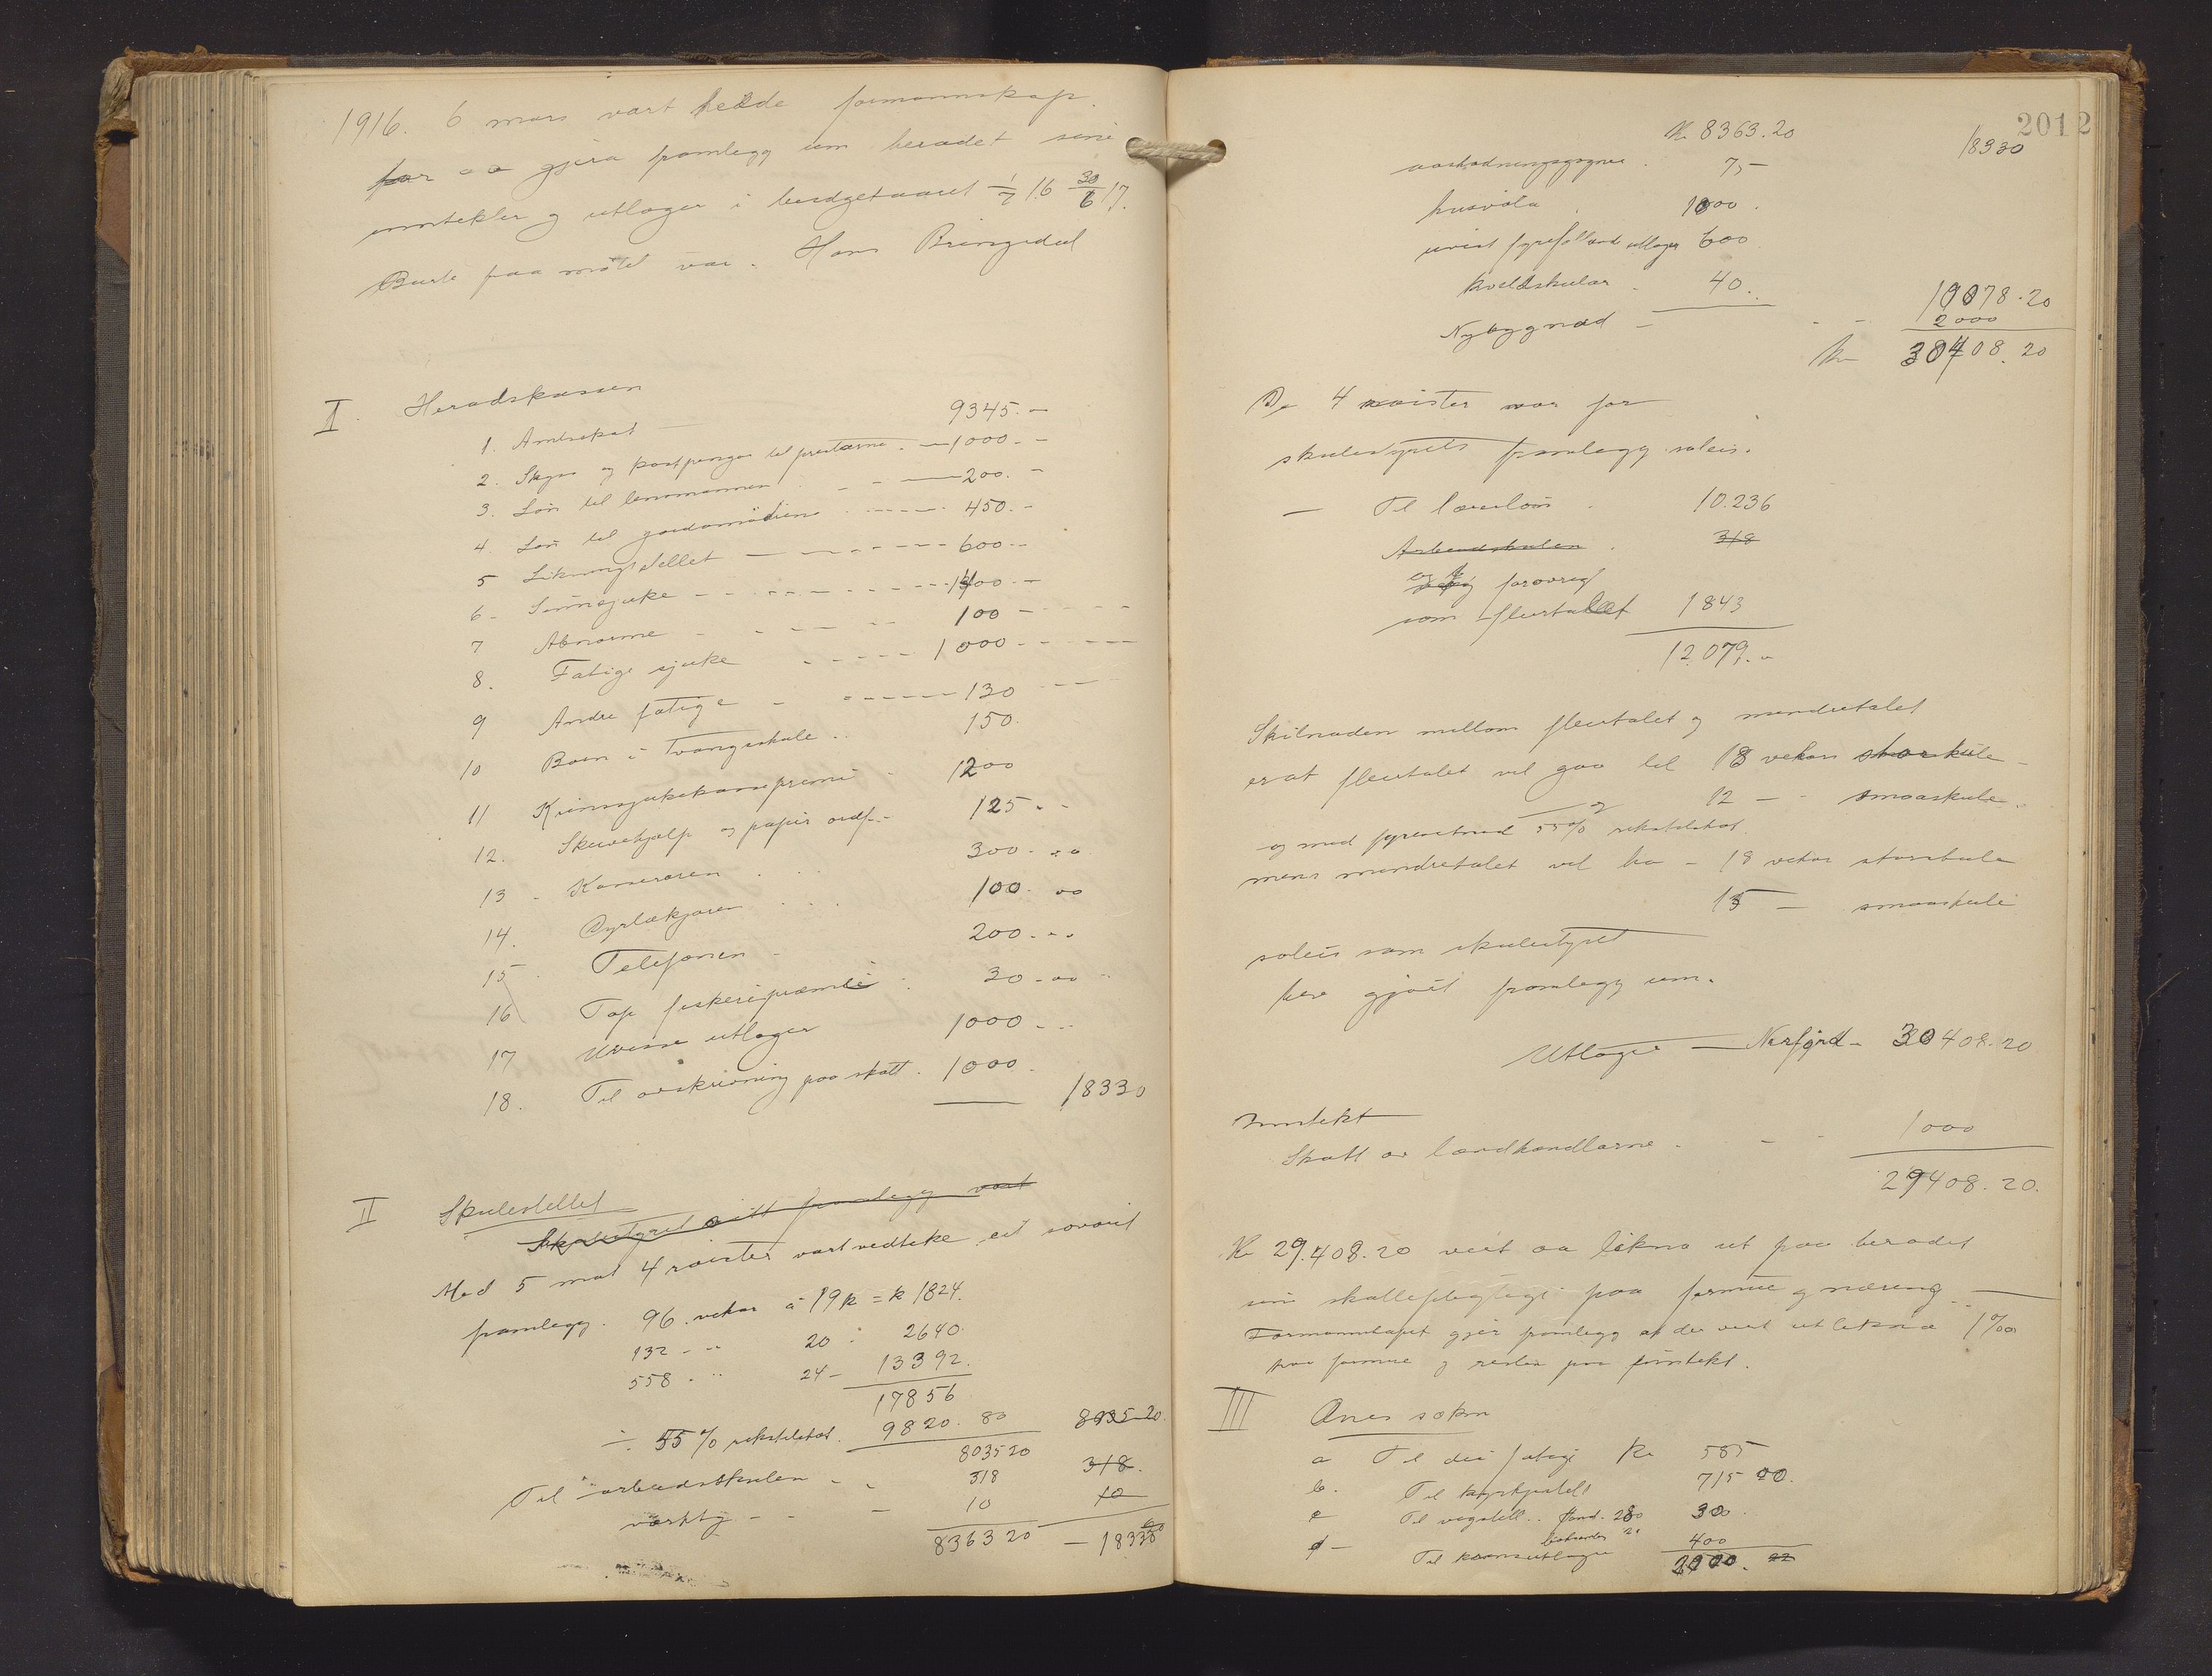 1916. 6 mars vart helde formannskap
for aa gjera framlegg um heradet sine
inntekter og utlagur i budgetaaret 1/7 16 30/6 17.
Burte paa mötet var. Hans Bringedal
I. Heradskassen
1. Amtsskat 9345.-
2. Skyss og kostpengar til prestarne. 1000.-
3. Løn til lensmannen 200.-
4. Løn til jordmödrene 450.-
5 Likningstellet 600.-
6. Sinnsjuke 1400.-
7 Abnorme 100
8. Fatige sjuke 1000
9 Andre fatige 130
10 Born i Tvangsskule 150
11 Krinssjukekassepremi 1200
12. Skrivehjelp og papir ordf. 125
13 Kasseraren 300
14. Dyrlækjaren 100
15 Telefonen 200
16 Tap fiskeripræmie 30
17 Uvisse utlagur 1000
18. Til avskrivning paa skatt. 1000. 18330
II Skulestellet
Skulestyret sitt framlegg vart
Med 5 mot 4 röister vart vedteke eit sovorit
framlegg. 96 vekor à 19 k = k 1824.
132 - " 20 - 2640.
558 - " 24 - 13392.
17856
÷ 55 % rikstilskot. 9820.80 8035.20.
8035 20
Til arbeidsskulen 318 318.
værkty 10 10
8363 20 - 18330
2012
Kr 8363.20 18330
75 -
husvöla 1000.
uvist fyrefallande utlagur 600
kveldskular 40. 10078.20
Nybyggnad 2000
Kr 30408.20
De 4 röister var for
skulestyrets framlegg soleis.
- Til lærarløn 10.236
Arbeidsskulen 318
og forövrig
som fleirtallet 1843
12079.-
Skilnaden millom fleirtalet og mindretalet
er at fleirtalet vil gaa til 18 vekor storskule
og 12 - smaaskule
og med fyresetnad 55 % rikstilskot.
mens mindretalet vil ha - 18 vekor storskule
15 - smaaskule
soleis som skulestyret
heve gjört framlegg um.
Utlagur - Nerfjord - 30408.20
Inntekt
Skatt av landhandlarne - 1000
29408.20.
Kr 29.408.20 vert aa likna ut paa heradet
sine skatteplegtige paa formue og næring
Formannskapet gjer framlegg at det vert utlikna 1 ‰
paa formue og resten paa inntekt.
III Anes sokn
a Til dei fatige Kr 585
b. Til kyrkjestell 715 20.
c Til vegstell 300
d - Til krinsutlagur 400
2000.